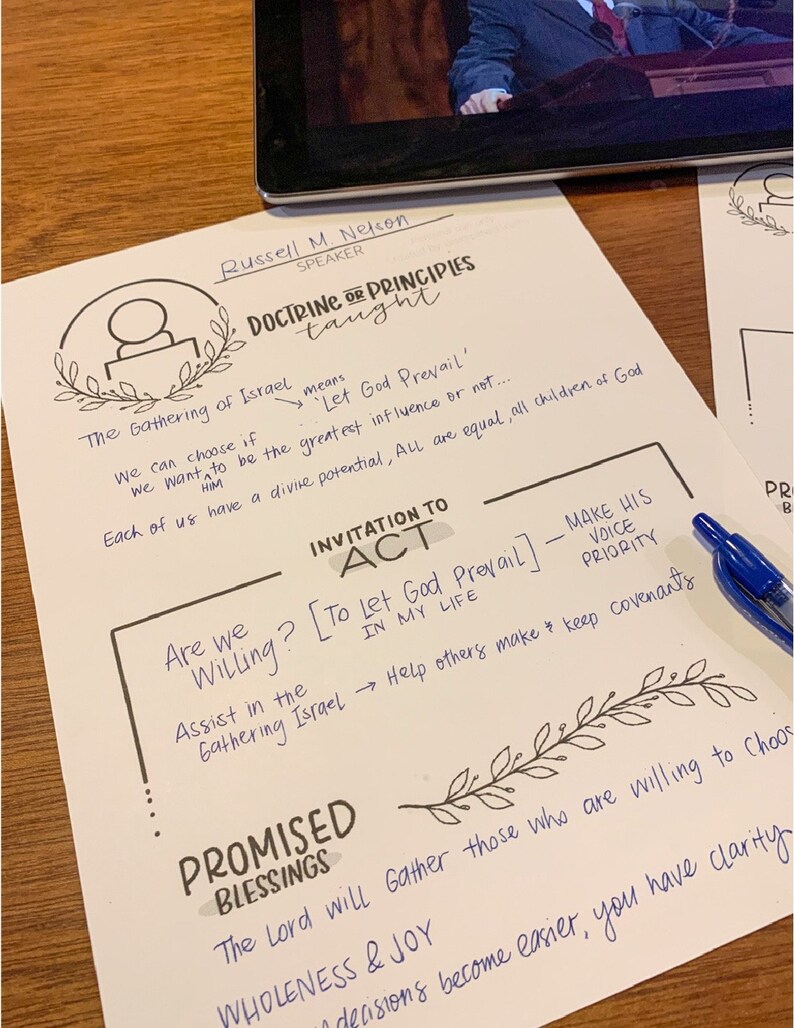 Russell M. Nelson
SPEAKER
DOCTRINE OR PRINCIPLES
taught
The Gathering of Israel → means
'Let God Prevail'
We can choose if
we want HIM to be the greatest influence or not...
Each of us have a divine potential, All are equal, all children of God
INVITATION TO
ACT
Are we
Willing? [To Let God Prevail] — MAKE HIS
IN MY LIFE VOICE
PRIORITY
Assist in the
Gathering Israel → Help others make & keep covenants
PROMISED
BLESSINGS
The Lord will Gather those who are willing to Choos
WHOLENESS & JOY
decisions become easier, you have clarity
PR
B